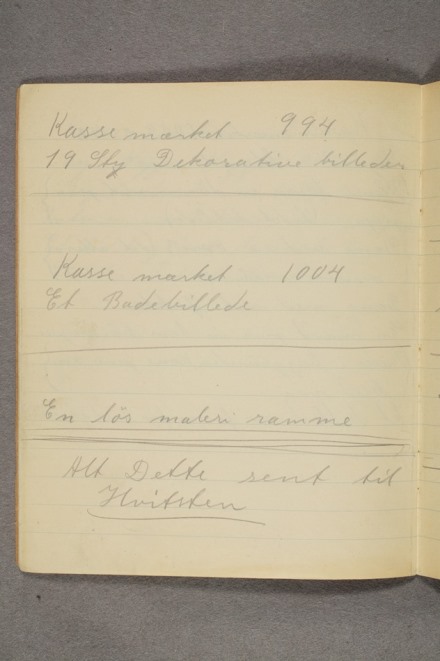 Kasse mærket 994
19 Sty Dekorative billeder
Kasse mærket 1004
Et Badebillede
En løs maleri ramme
Alt Dette sent til
Hvitsten